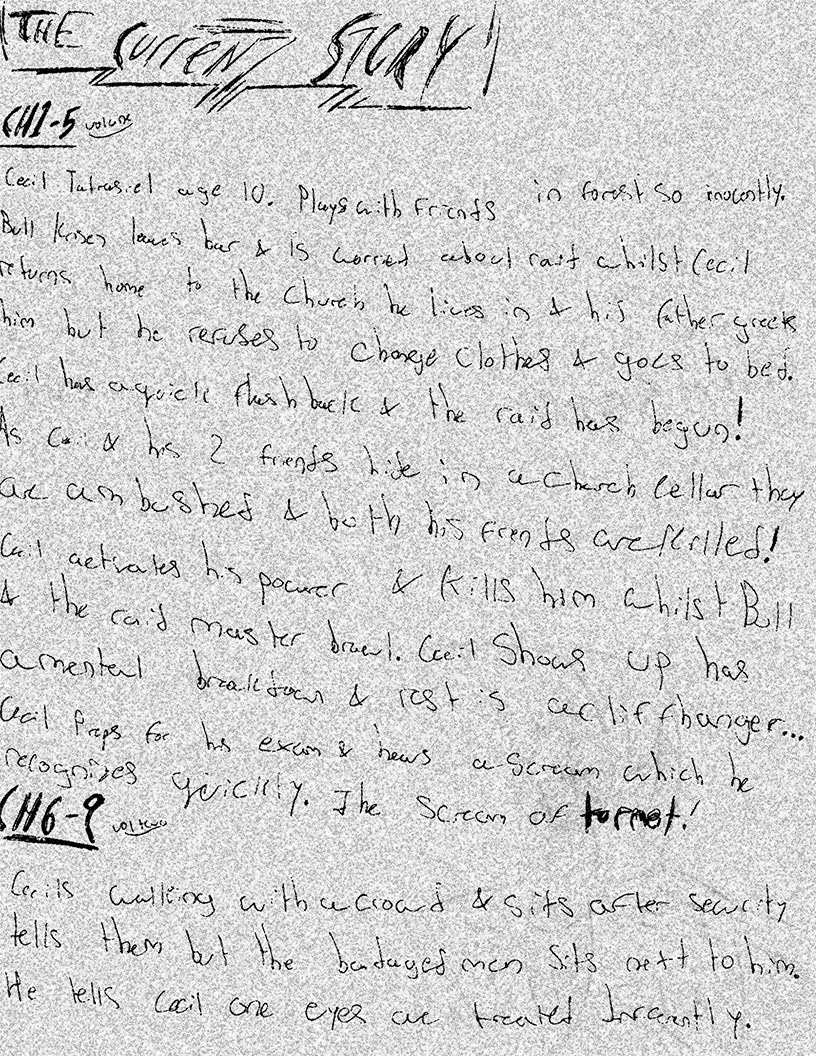 THE Current STORY
CH1-5 volume
Cecil age 10. Plays with Friends in forest so inocently.
Bull Krisen leaves bar & is worried about raid whilst Cecil
returns home to the Church he lives in & his father greets
him but he refuses to change clothes & goes to bed.
Cecil has a quick flashback & the raid has begun!
As Cecil & his 2 friends hide in a church cellar they
are ambushed & both his friends are killed!
Cecil activates his power & kills him whilst Bull
& the raid master brawl. Cecil shows up has
a mental breakdown & rest is a cliffhanger...
Cecil Preps for his exam & hears a scream which he
recognizes quickly. The scream of torment!
CH6-9 vol two
Cecils walking with a crowd & sits after security
tells them but the bandaged man sits next to him.
He tells Cecil one eyes are treated